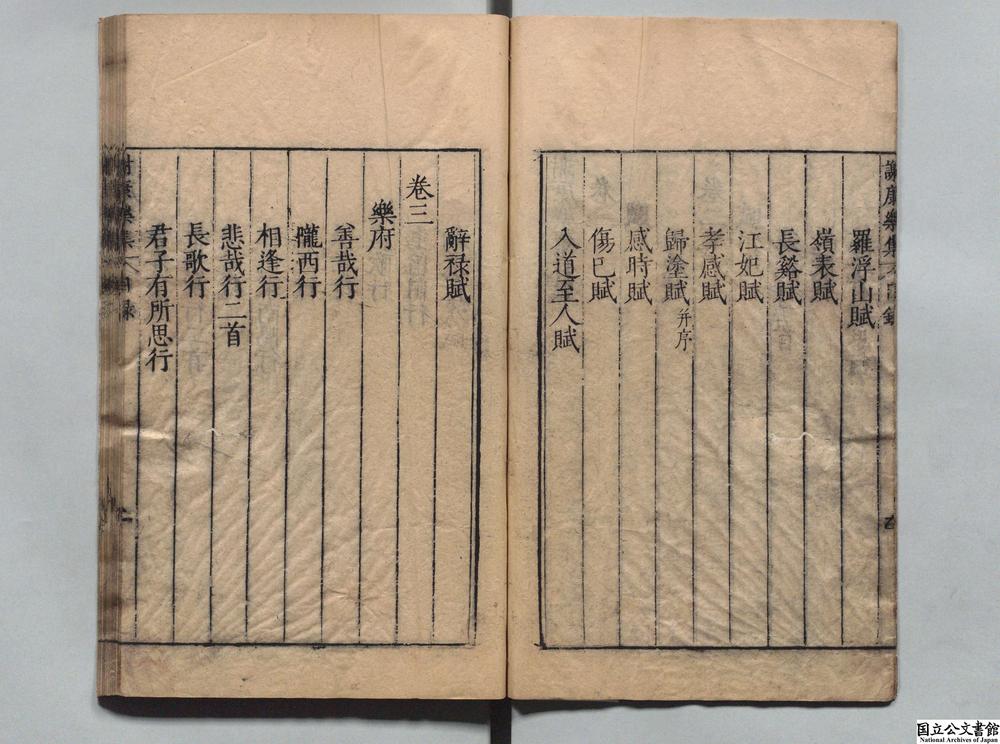 謝康樂集
羅浮山賦
嶺表賦
長谿賦
江妃賦
孝感賦
歸塗賦 并序
感時賦
傷已賦
入道至人賦
辭祿賦
卷三
樂府
善哉行
隴西行
相逢行
悲哉行二首
長歌行
君子有所思行
国立公文書館
National Archives of Japan